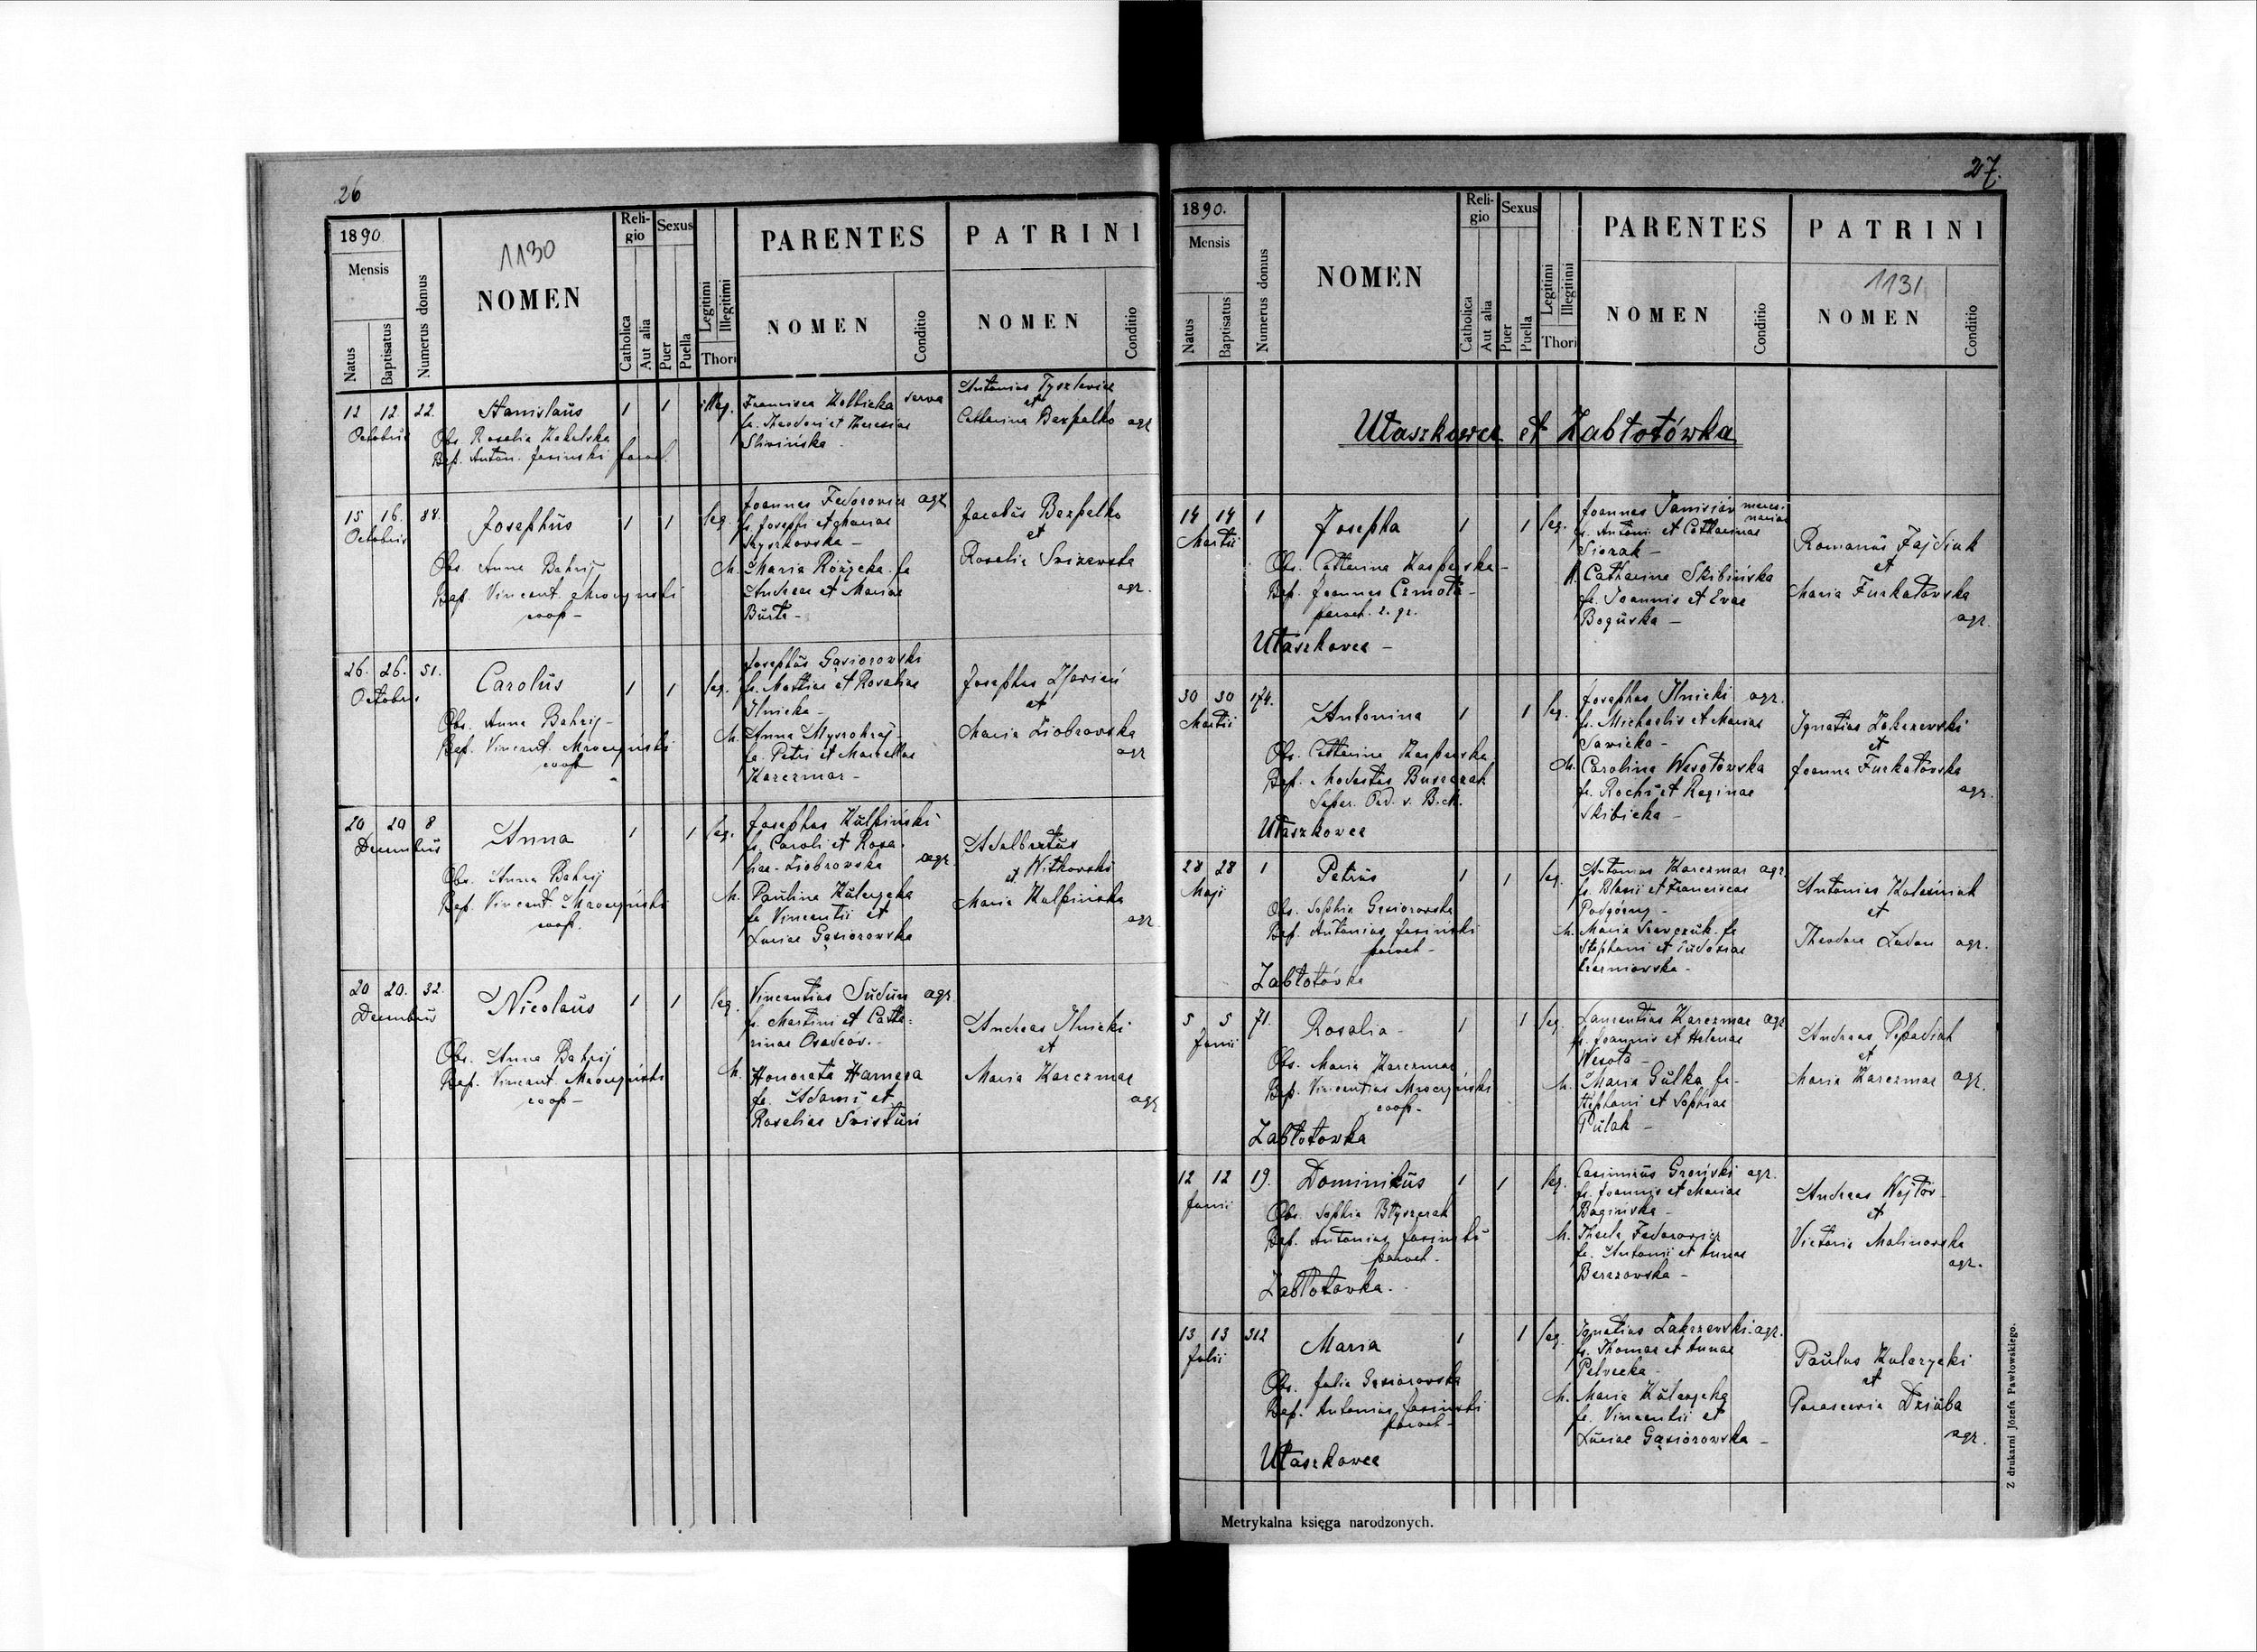 26
1890
Mensis
Natus
Baptisatus
Numerus domus
1130
NOMEN
Religio
Catholica
Aut alia
Sexus
Puer
Puella
Legitimi
Illegitimi
Thori
PARENTES
NOMEN
Conditio
PATRINI
NOMEN
Conditio
12 12. 22. Stanislaus 1 1 illeg.
Octobris
Obs. Rosalia
Bap. Anton. Jasinski paroch.
Francisca serva
fa. Theodori et Theresiae
Slivińska
Antonius
et
Catharina Bezpalko agr
15 16. 88. Josephus 1 1 leg.
Octobris
Obs. Anna Bahrij
Bap. Vincent. Mroczyński
coop -
Joannes Fedorovicz agr
fs. Josephi et
M. Maria Różycka fa
Andreae et Mariae
Jacobus Bezpalko
et
Rosalia
agr.
26. 26. 51. Carolus 1 1 leg.
Octobris
Obs. Anna Bahrij -
Bap. Vincent. Mroczyński
coop
Josephus Gąsiorowski
fs. Mattiae et Rosaliae
Ilnicka -
M. Anna
fa. Petri et Marcellae
Karczmar -
Josephus
et
Maria Ziobrowska
agr
20 20 8 Anna 1 1 leg.
Decembris
Obs. Anna Bahrij
Bap. Vincent. Mroczyński
coop.
Josephus Kulpiński
fs. Caroli et Rosa-
liae Ziobrowska agr
M. Paulina Kulczycka
fa Vincentii et
Luciae Gąsiorowska
Adalbertus
et Witkowski
Maria Kulpińska
agr
20 20. 32. Nicolaus 1 1 leg.
Decembris
Obs. Anna Bahrij
Bap. Vincent. Mroczyński
coop -
Vincentius Sudun agr
fs. Martini et Catha-
rinae Osadców. -
M. Honorata
fa. Adami et
Rosaliae Svistuń
Andreas Ilnicki
et
Maria Karczmar
agr
27.
1890.
Mensis
Natus
Baptisatus
Numerus domus
NOMEN
Religio
Catholica
Aut alia
Sexus
Puer
Puella
Legitimi
Illegitimi
Thori
PARENTES
NOMEN
Conditio
PATRINI
1131
NOMEN
Conditio
Utaszkowce et Zabłotówka
14 14 1 Josepha 1 1 leg.
Martii
Obs. Catharina Kasperska -
Bap. Joannes Czmota -
paroch. r. gr.
Utaszkowce -
Joannes
fs. Antoni et Catharinae
M. Catharina Skibińska
fa. Joannis et Evae
Boguska -
Romanus Zajdiuk
et
Maria Furkatówska
agr.
30 30 174. Antonina 1 1 leg.
Martii
Obs. Catharina Kasperska
Bap. Modestus
Super. Ord. s. B. M.
Utaszkowce
Josephus Ilnicki agr.
fs. Michaelis et Mariae
Sawicka -
M. Carolina Wesołowska
fa. Rochi et Reginae
Skibicka -
Ignatius Zakrzewski
et
Joanna Furkatówska
agr.
28 28 1 Petrus 1 1 leg.
Maji
Obs. Sophia Gąsiorowska
Bap. Antonius Jasinski
paroch -
Zabłotówka
Antonius Karczmar agr
fs. Blasii et Franciscae
Podgórny -
M. Maria Szewczuk fa
Stephani et Eudoxiae
Antonius
et
Theodora agr.
5 5 71. Rosalia - 1 1 leg.
Junii
Obs. Maria Karczmar
Bap. Vincentius Mroczyński
coop -
Zabłotowka
Laurentius Karczmar agr
fs. Joannis et Helenae
Wesoła -
M. Maria Gulka fa -
Stephani et Sophiae
Pulak -
Andreas
et
Maria Karczmar agr.
12 12 19. Dominikus 1 1 leg.
Junii
Obs. Sophia
Bap. Antonius Jasinski
paroch -
Zabłotówka.
Casimirus Groński agr.
fs. Joannis et Mariae
Bagińska -
M. Thecla Fedorowicz
fa. Antonii et Annae
Berezowska -
Andreas Wojtów
et
Victoria Malinowska
agr.
13 13 312 Maria 1 1 leg.
Julii
Obs. Julia Gąsiorowska
Bap. Antonius Jasinski
paroch -
Utaszkowce
Ignatius Zakrzewski agr.
fs. Thomae et Annae
M. Maria Kulczycka
fa. Vincentii et
Luciae Gąsiorowska -
Paulus Kulczycki
et
Parascevia Dziuba
agr.
Metrykalna księga narodzonych.
Z drukarni Józefa Pawłowskiego.